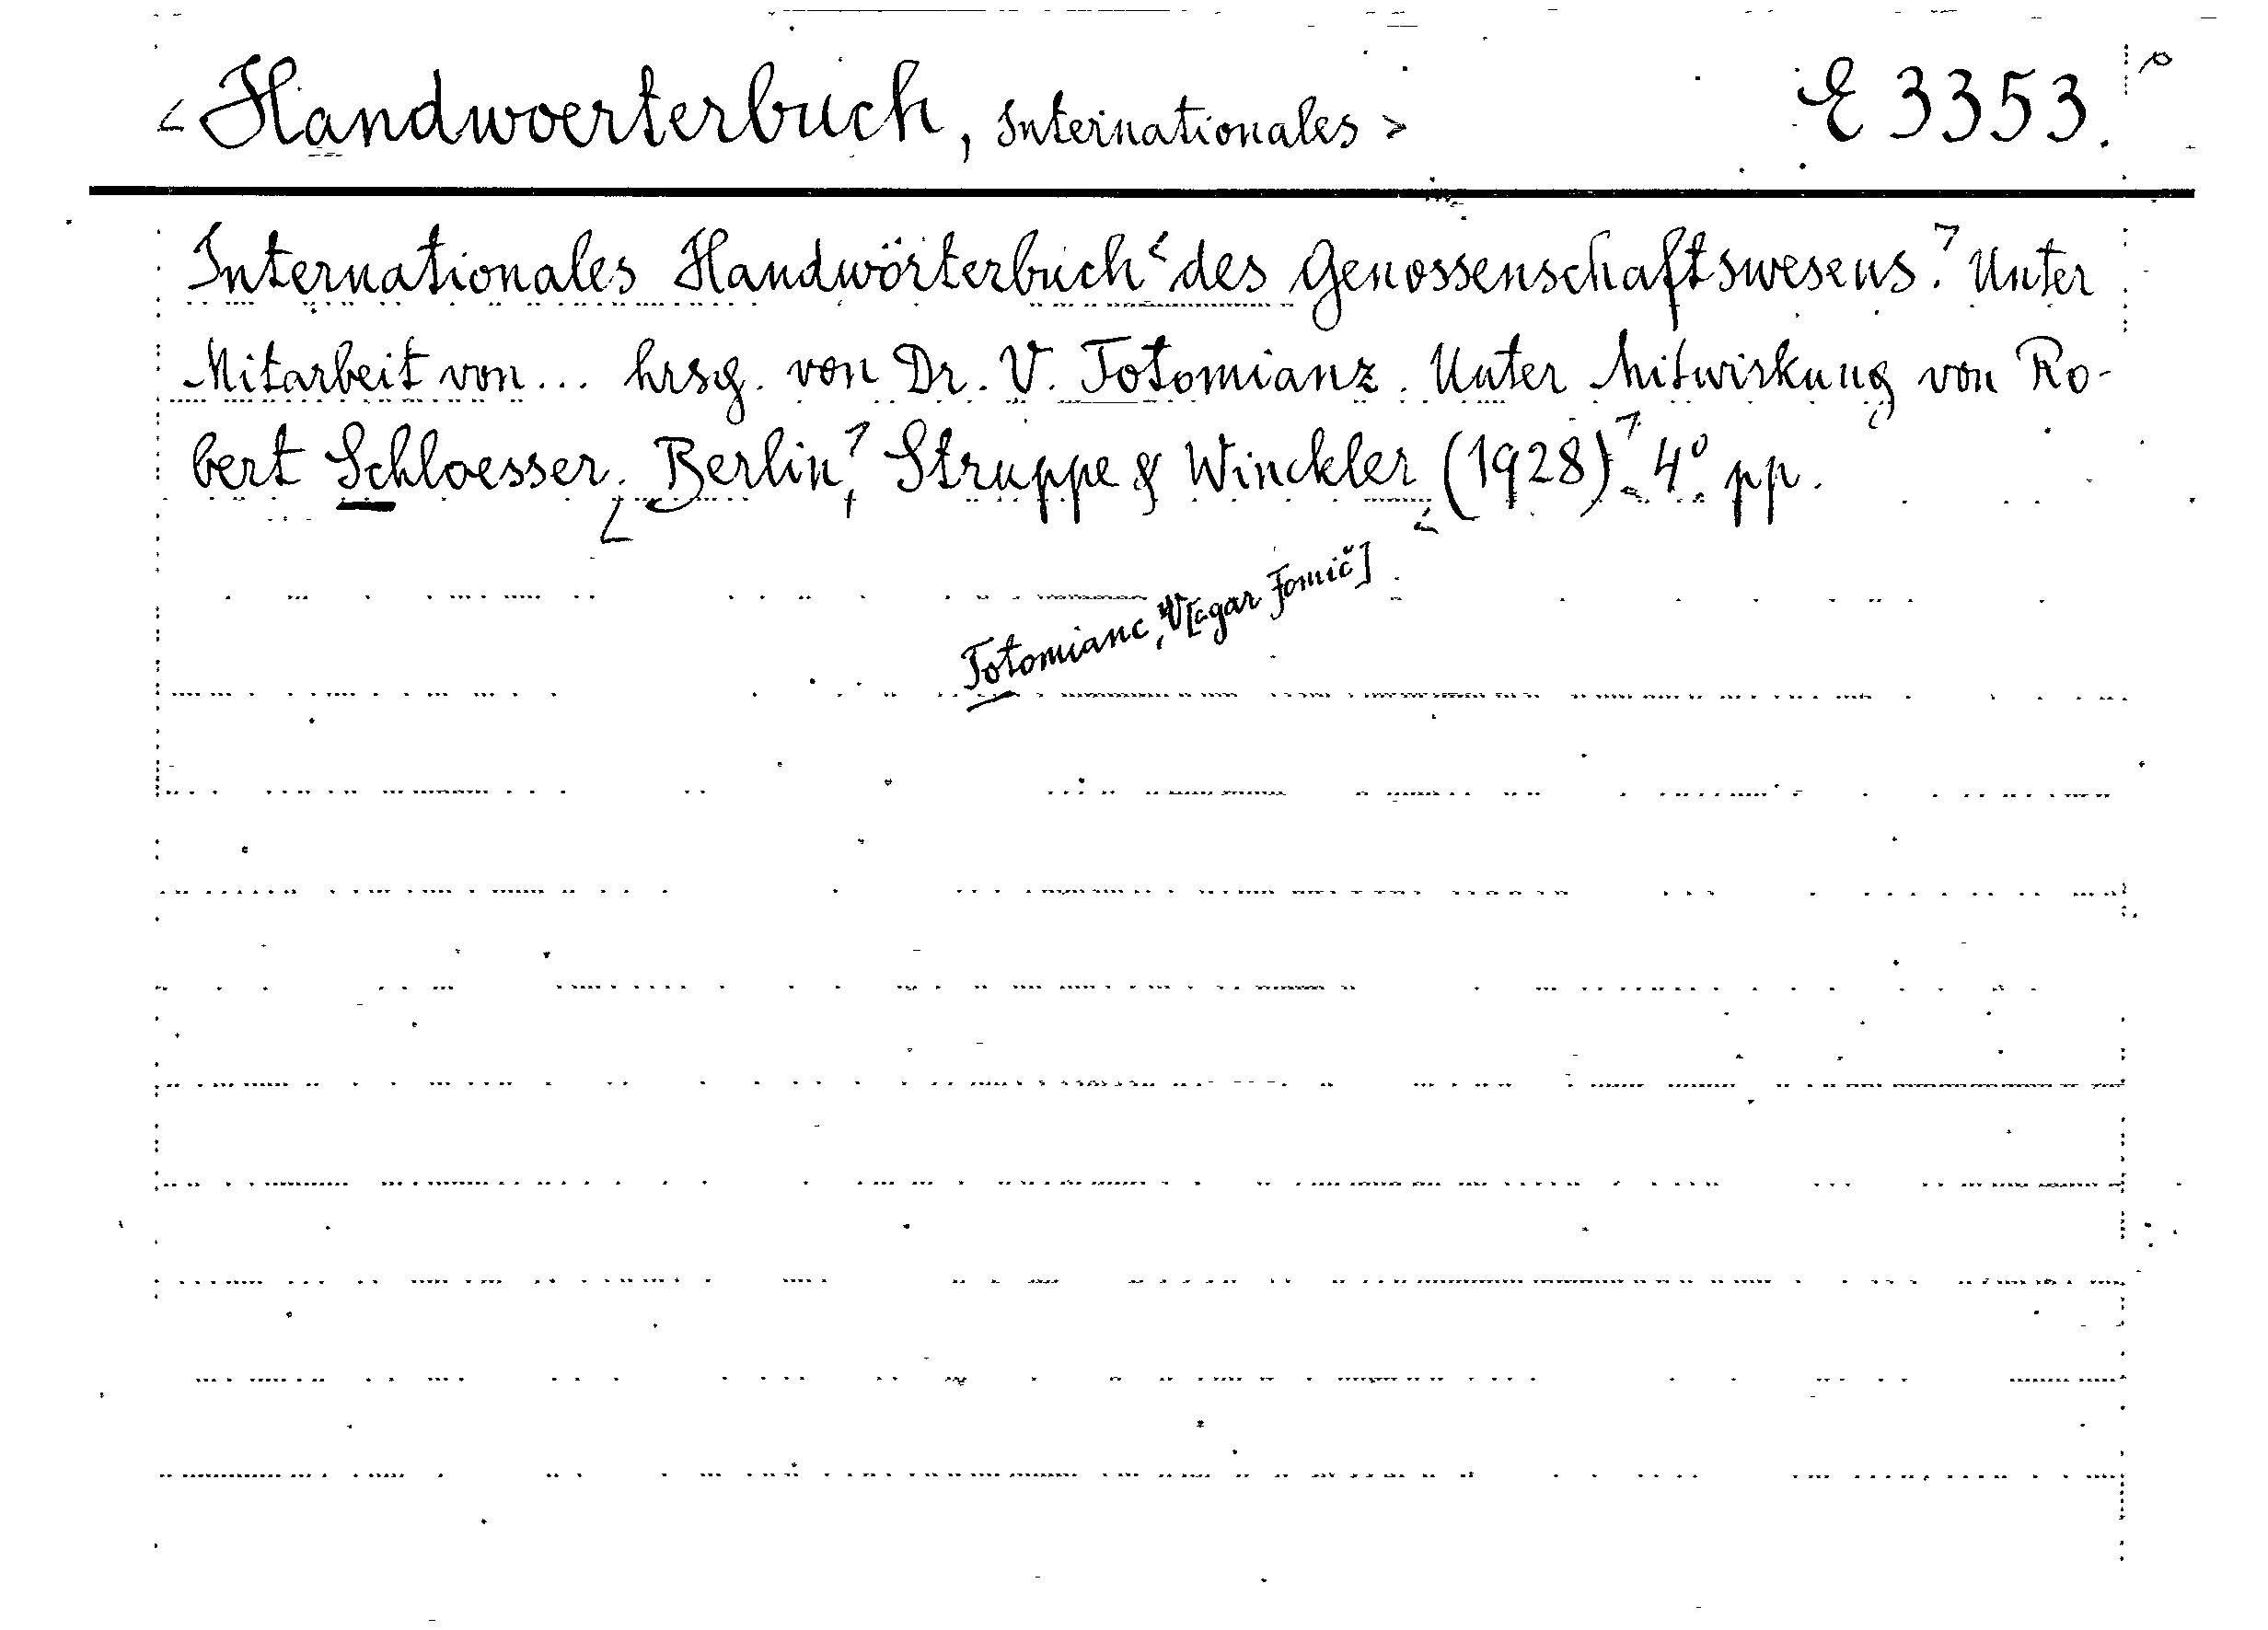 < Handwoerterbuch, Internationales > E 3353.
Internationales Handwörterbuch < des Genossenschaftswesens. > Unter
Mitarbeit von... hrsg. von Dr. V. Totomianz. Unter Mitwirkung von Ro-
bert Schloesser. < Berlin, > Struppe & Winckler < (1928) > 4° pp.
Totomianc, V[agar Fomič]